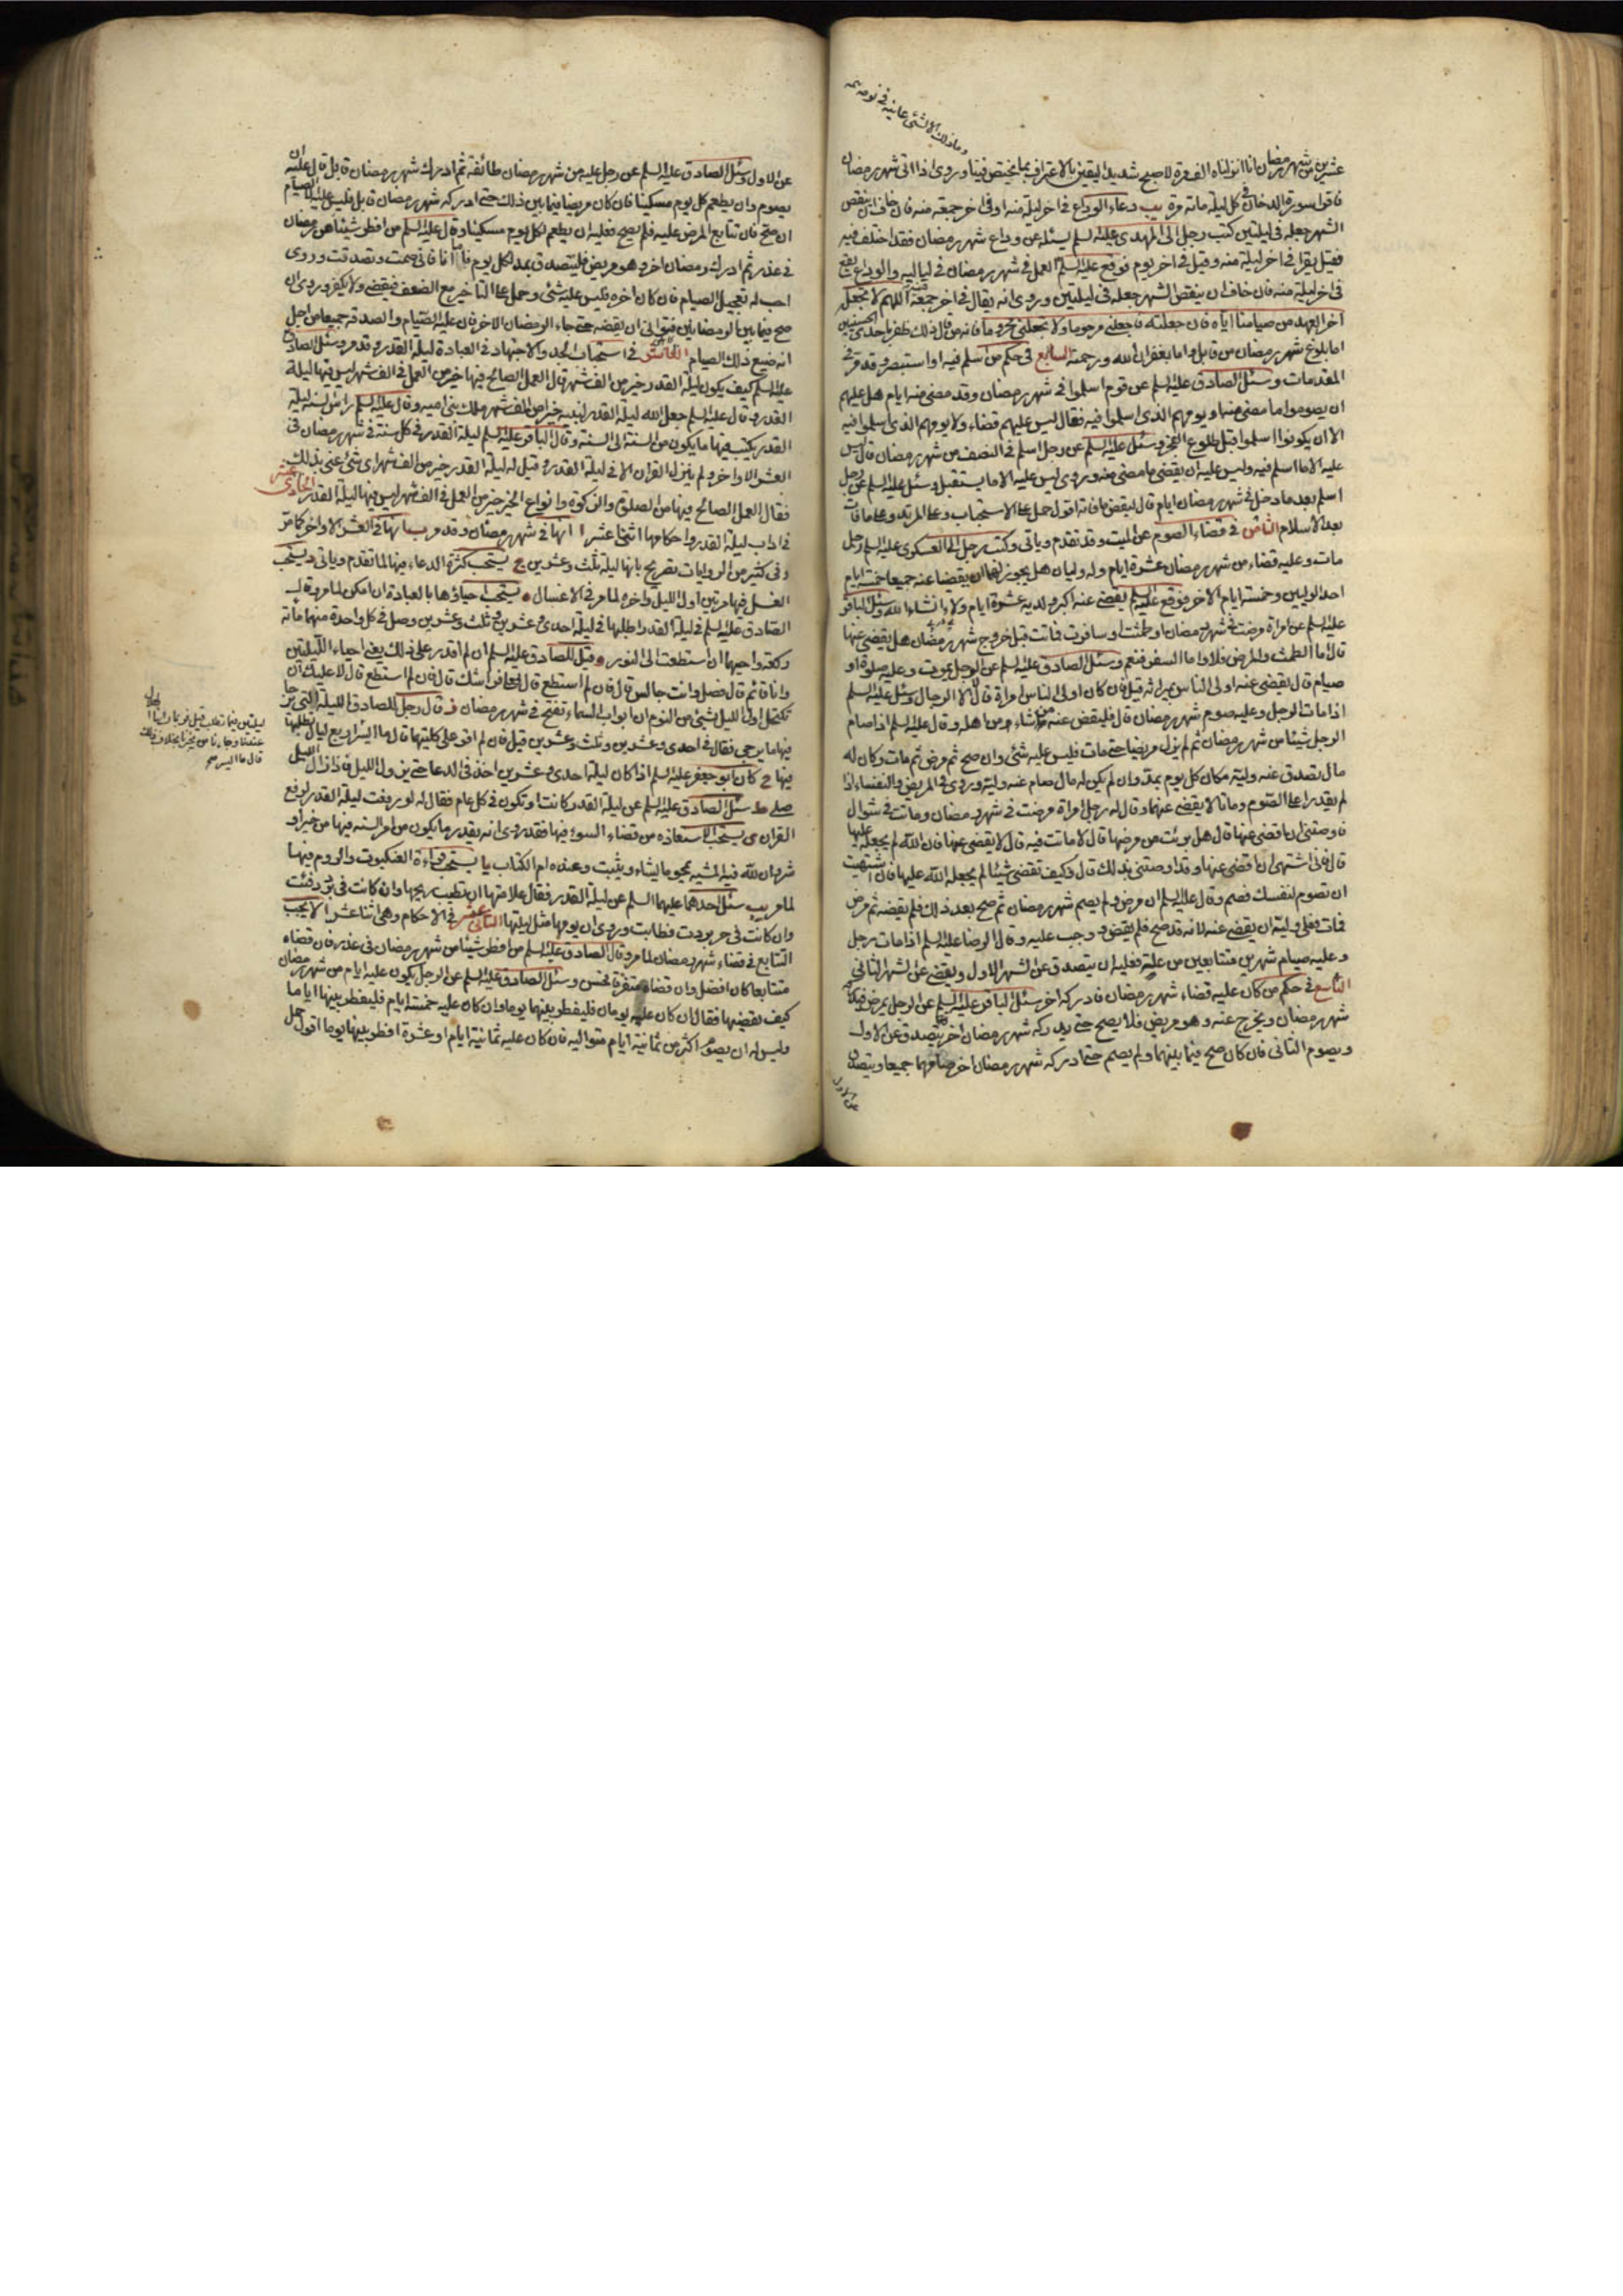 وما ذلك الا لشئ عاينه في نومه
عشرين من شهر رمضان انا انزلناه الف مرة لاصبح شديد اليقين بالاعتراف بما يختص فينا وروى اذا اتى شهر رمضان
فاقرا سورة الدخان في كل ليلة مائة مرة يب دعاء الوداع في اخر ليلة منه او في اخر جمعة منه فان خاف ان ينقص
الشهر جعله في ليلتين كتب رجل الى المهدي عليه السلم يسئله عن وداع شهر رمضان فقد اختلف فيه
فقيل يقرا في اخر ليلة منه وقيل في اخر يوم فوقع عليه السلم العمل في شهر رمضان في لياليه والوداع يقع
في اخر ليلة منه فان خاف ان ينقص الشهر جعله في ليلتين وروى انه يقال في اخر جمعة اللهم لا تجعله
اخر العهد من صيامنا اياه فان جعلته فاجعلني مرحوما ولا تجعلني محروما فانه من قال ذلك ظفر باحدى الحسنيين
اما بلوغ شهر رمضان من قابل واما بغفران الله ورحمته السابع في حكم من اسلم فيه او استبصر وقد مر في
المقدمات وسئل الصادق عليه السلم عن قوم اسلموا في شهر رمضان وقد مضى منه ايام هل عليهم
ان يصوموا ما مضى منها او يومهم الذي اسلموا فيه فقال ليس عليهم قضاء ولا يومهم الذي اسلموا فيه
الا ان يكونوا اسلموا قبل طلوع الفجر وسئل عليه السلم عن رجل اسلم في النصف من شهر رمضان قال ليس
عليه الا ما اسلم فيه وليس عليه ان يقضي ما مضى منه وروى ليس عليه الا ما يستقبل وسئل عليه السلم عن رجل
اسلم بعد ما دخل في شهر رمضان ايام قال ليقض ما فاته اقول حمل على الاستحباب وعلى المرتد وعلى ما فات
بعد الاسلام الثامن في قضاء الصوم عن الميت وقد تقدم وياتى وكتب رجل الى العسكرى عليه السلم رجل
مات وعليه قضاء من شهر رمضان عشرة ايام وله وليان هل يجوز لهما ان يقضيا عنه جميعا خمسة ايام
احد الوليين وخمسة ايام الاخر فوقع عليه السلم يقضى عنه اكبر ولديه عشرة ايام ولاء ان شاء الله وسئل الباقر
عليه السلم عن امراة مرضت في شهر رمضان او طمثت او سافرت فماتت قبل خروج شهر رمضان هل يقضى عنها
قال اما الطمث والمرض فلا واما السفر فنعم وسئل الصادق عليه السلم عن الرجل يموت وعليه صلوة او
صيام قال يقضى عنه اولى الناس بميراثه قيل فان كان اولى الناس امراة قال لا الا الرجال وسئل عليه السلم
اذا مات الرجل وعليه صوم شهر رمضان قال فليقض عنه من شاء من اهله وقال عليه السلم اذا صام
الرجل شيئا من شهر رمضان ثم لم يزل مريضا حتى مات فليس عليه شئ وان صح ثم مرض ثم مات وكان له
مال تصدق عنه وليه مكان كل يوم بمد وان لم يكن له مال صام عنه وليه وروى في المريض والنفساء اذا
لم يقدرا على الصوم وماتا لا يقضى عنهما وقال له رجل امراة مرضت في شهر رمضان وماتت في شوال
فاوصتنى ان اقضى عنها قال هل برئت من مرضها قال لا ماتت فيه قال لا يقضى عنها فان الله لم يجعله عليها
قال فانى اشتهى ان اقضى عنها وقد اوصتنى بذلك قال وكيف تقضى شيئا لم يجعله الله عليها فان اشتهيت
ان تصوم لنفسك فصم وقال عليه السلم ان مرض ولم يصم شهر رمضان ثم صح بعد ذلك فلم يقضه ثم مرض
فمات فعلى وليه ان يقضى عنه لانه قد صح فلم يقض ووجب عليه وقال الرضا عليه السلم اذا مات رجل
وعليه صيام شهرين متتابعين من علة فعليه ان يتصدق عن الشهر الاول ويقضى عن الشهر الثانى
التاسع في حكم من كان عليه قضاء شهر رمضان فادركه اخر سئل الباقر عليه السلم عن الرجل يمرض فيدركه
شهر رمضان ويخرج عنه وهو مريض فلا يصح حتى يدركه شهر رمضان اخر قال يتصدق عن الاول
ويصوم الثانى فان كان صح فيما بينهما ولم يصم حتى ادركه شهر رمضان اخر صامهما جميعا ويتصدق
عن الاول
عن الاول وسئل الصادق عليه السلم عن رجل عليه من شهر رمضان طائفة ثم ادرك شهر رمضان قابل قال عليه ان
يصوم وان يطعم كل يوم مسكينا فان كان مريضا فيما بين ذلك حتى ادركه شهر رمضان قابل فليس عليه الا الصيام
ان صح فان تتابع المرض عليه فلم يصح فعليه ان يطعم لكل يوم مسكينا وقال عليه السلم من افطر شيئا من رمضان
في عذر ثم ادرك رمضان اخر وهو مريض فليتصدق بمد لكل يوم فاما انا فانى صمت وتصدقت وروى
احب له تعجيل الصيام فان كان اخره فليس عليه شئ وحمل على التاخير مع الضعف فيقضى ولا يكفر وروى ان
صح فيما بين الرمضانين فتوانى ان يقضيه حتى جاء الرمضان الاخر فان عليه الصيام والصدقة جميعا من اجل
انه ضيع ذلك الصيام العاشر في استحباب الجد والاجتهاد في العبادة ليلة القدر وقد مر وسئل الصادق
عليه السلم كيف يكون ليلة القدر خير من الف شهر قال العمل الصالح فيها خير من العمل في الف شهر ليس فيها ليلة
القدر وقال عليه السلم جعل الله ليلة القدر لنبيه خير من الف شهر ملك بنى امية وقال عليه السلم راس السنة ليلة
القدر يكتب فيها ما يكون من السنة الى السنة وقال الباقر عليه السلم ليلة القدر في كل سنة في شهر رمضان في
العشر الاواخر ولم ينزل القران الا في ليلة القدر وقيل له ليلة القدر خير من الف شهر اى شئ عنى بذلك
فقال العمل الصالح فيها من الصلوة والزكوة وانواع الخير خير من العمل في الف شهر ليس فيها ليلة القدر الحادى عشر
في اداب ليلة القدر واحكامها اثنى عشر ا انها في شهر رمضان وقد مر ب انها في العشر الاواخر كما مر
وفى كثير من الروايات تصريح بانها ليلة ثلث وعشرين ج يستحب كثرة الدعاء فيها لما تقدم وياتى د يستحب
الغسل فيها مرتين اول الليل واخره لما مر في الاغسال ه يستحب احياؤها بالعبادة ان امكن لما مر وقال
الصادق عليه السلم في ليلة القدر اطلبها في ليلة احدى وعشرين وثلث وعشرين وصل في كل واحدة منهما مائة
ركعة واحيهما ان استطعت الى النور و قيل للصادق عليه السلم ان لم اقدر على ذلك يعنى احياء الليلتين
وانا قائم قال فصل وانت جالس قال فان لم استطع قال فعلى فراشك قال فان لم استطع قال لا عليك ان
تكتحل اول الليل بشئ من النوم ان ابواب السماء تفتح في شهر رمضان ز قال رجل للصادق الليلة التى يرجا
فيها ما يرجى فقال في احدى وعشرين وثلث وعشرين قيل فان لم اقو على كلتيهما قال ما ايسر اربع ليال تطلبها
فيها ح كان ابو جعفر عليه السلم اذا كان ليلة احدى وعشرين اخذ في الدعا حتى يزول الليل فاذا زال الليل
صلى ط سئل الصادق عليه السلم عن ليلة القدر كانت او تكون في كل عام فقال له لو رفعت ليلة القدر لرفع
القران ى يستحب الاستعاذة من قضاء السوء فيها فقد روى انه يقدر ما يكون من امر السنة فيها من خير او
شر وان لله فيه المشيه يمحو ما يشاء ويثبت وعنده ام الكتاب يا يستحب قراءة العنكبوت والروم فيها
لما مر يب سئل احدهما عليهما السلم عن ليلة القدر فقال علامتها ان تطيب ريحها وان كانت في برد دفئت
وان كانت في حر بردت فطابت وروى ان يومها مثل ليلتها الثانى عشر في الاحكام وهى اثنا عشر ا لا يجب
التتابع في قضاء شهر رمضان لما مر وقال الصادق عليه السلم من افطر شيئا من شهر رمضان في عذر فان قضاه
متتابعا كان افضل وان قضاه متفرقا فحسن وسئل الصادق عليه السلم عن الرجل يكون عليه ايام من شهر رمضان
كيف يقضيها فقال ان كان عليه يومان فليفطر بينهما يوما وان كان عليه خمسة ايام فليفطر بينها اياما
وليس له ان يصوم اكثر من ثمانية ايام متوالية فان كان عليه ثمانية ايام او عشرة افطر بينها يوما اقول حمل
ليلتين فيما تطلب قيل فربما راينا الهلال
عندنا وجاءنا من يخبرنا بخلاف ذلك
قال ما ايسر صح